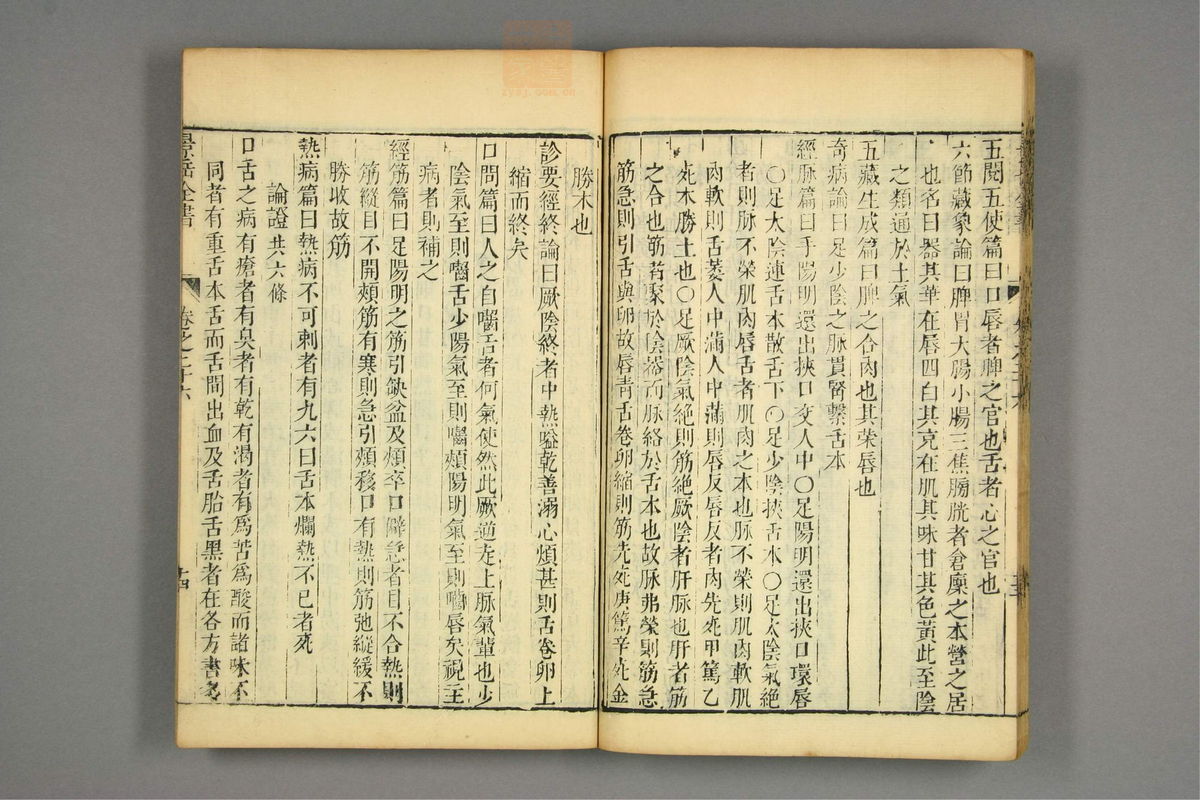 五閱五使篇曰口唇者脾之官也舌者心之官也
六節藏象論曰脾胃大腸小腸三焦膀胱者倉廩之本營之居
也名曰器其華在唇四白其充在肌其味甘其色黃此至陰
之類通於土氣
五藏生成篇曰脾之合肉也其榮唇也
奇病論曰足少陰之脈貫腎繫舌本
經脈篇曰手陽明還出挾口交人中○足陽明還出挾口環唇
○足太陰連舌本散舌下○足少陰挾舌本○足太陰氣絕
者則脈不榮肌肉唇舌者肌肉之本也脈不榮則肌肉軟肌
肉軟則舌萎人中滿人中滿則唇反唇反者肉先死甲篤乙
死木勝土也○足厥陰氣絕則筋絕厥陰者肝脈也肝者筋
之合也筋者聚於陰器而脈絡於舌本也故脈弗榮則筋急
筋急則引舌與卵故唇青舌卷卵縮則筋先死庚篤辛死金
勝木也
診要經終論曰厥陰終者中熱嗌乾善溺心煩甚則舌卷卵上
縮而終矣
口問篇曰人之自嚙舌者何氣使然此厥逆走上脈氣輩也少
陰氣至則嚙舌少陽氣至則嚙頰陽明氣至則嚙唇矣視主
病者則補之
經筋篇曰足陽明之筋引缺盆及頰卒口僻急者目不合熱則
筋縱目不開頰筋有寒則急引頰移口有熱則筋弛縱緩不
勝收故筋
熱病篇曰熱病不可刺者有九六曰舌本爛熱不已者死
論證共六條
口舌之病有瘡者有臭者有乾有渴者有爲苦爲酸而諸味不
同者有重舌木舌而舌間出血及舌胎舌黑者在各方書多
景岳全書
卷之二十六
十四
zysj.com.cn